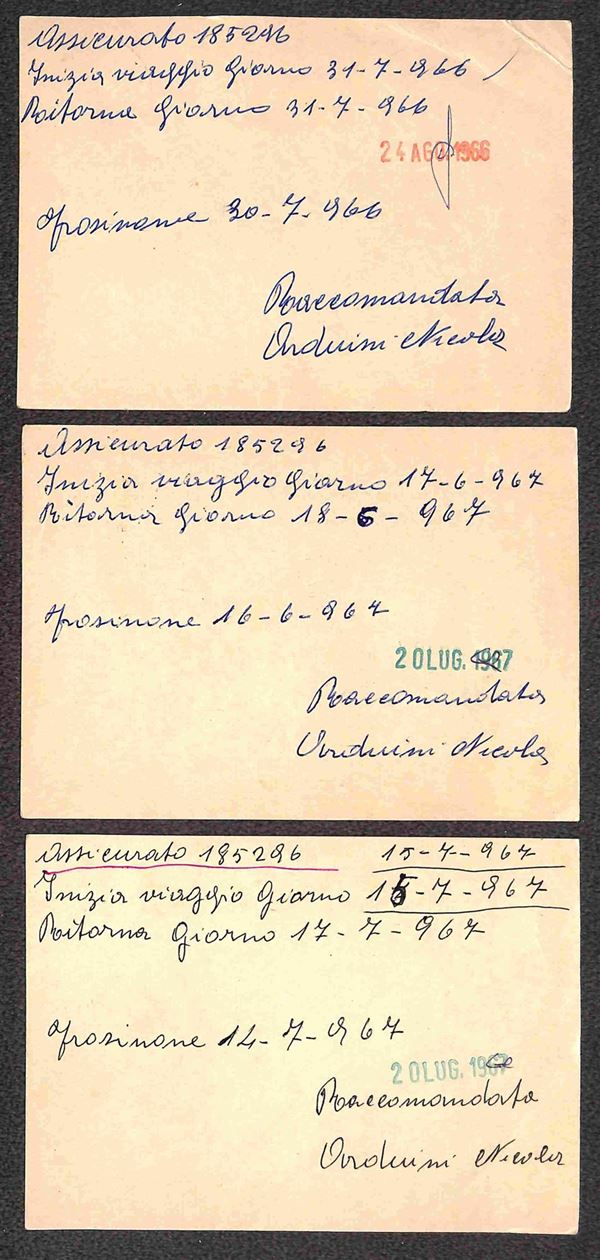 Assicurato 185296
Inizia viaggio Giorno 31-7-966
Ritorna Giorno 31-7-966
24 AGO 1966
Frosinone 30-7-966
Raccomandata
Arduini Nicola
Assicurato 185296
Inizia viaggio Giorno 17-6-967
Ritorna Giorno 18-6-967
Frosinone 16-6-967
20 LUG. 1967
Raccomandata
Arduini Nicola
Assicurato 185296 15-7-967
Inizia viaggio Giorno 15-7-967
Ritorna Giorno 17-7-967
Frosinone 14-7-967
20 LUG. 1967
Raccomandata
Arduini Nicola